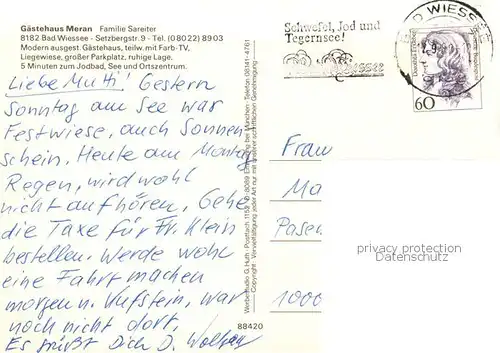 Gästehaus Meran Familie Sareiter
8182 Bad Wiessee - Setzbergstr. 9 - Tel. (08022) 8903
Modern ausgest. Gästehaus, teilw. mit Farb-TV,
Liegewiese, großer Parkplatz, ruhige Lage.
5 Minuten zum Jodbad, See und Ortszentrum.
Liebe Mutti! Gestern
Sonntag am See war
Festwiese, auch Sonnen
schein. Heute am Montag
Regen, wird wohl
nicht aufhören. Gehe
die Taxe für Fr. Klein
bestellen. Werde wohl
eine Fahrt machen
morgen n. Kufstein, war
noch nicht dort,
Es grüßt Dich D. Wolfgang
Werbestudio G. Huth · Postfach 1152 · D-8089 Emmering bei München · Telefon 08141-4761
Copyright · Vervielfältigung jeder Art nur mit unserer schriftlichen Genehmigung
88420
Schwefel, Jod und
Tegernsee!
BAD WIESSEE
Deutsche Bundespost
60
Frau
Ma
Pasen
1000
privacy protection
DDR Mitteilungen